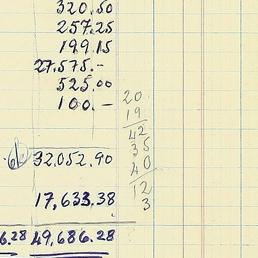 320.50
257.25
199.15
27.575.-
525.00
100.-
20
19
42
35
40
12
3
32.052.90
17,633.38
6.28 49,686.28